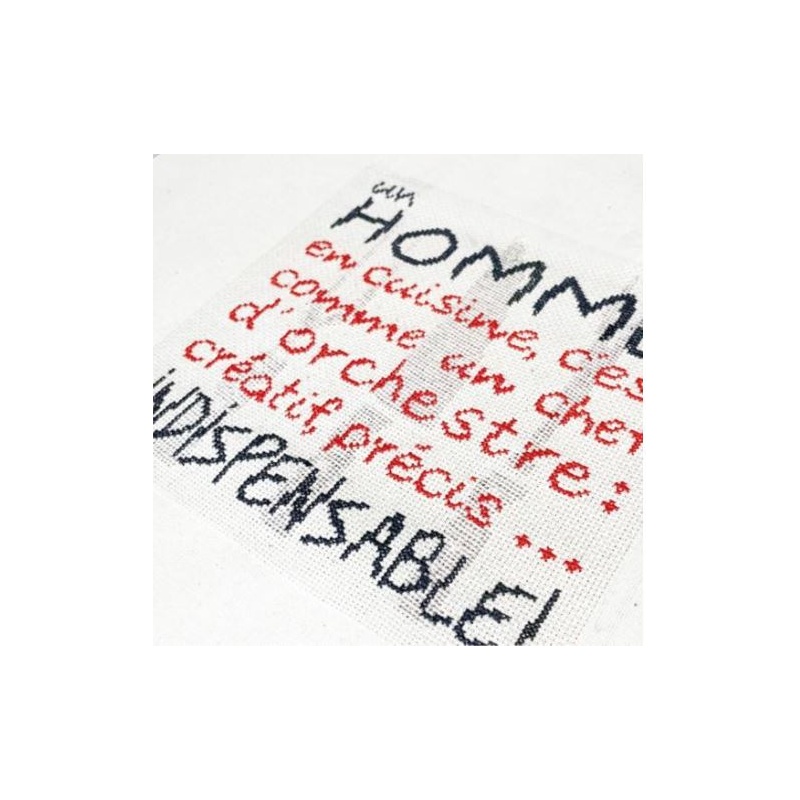 un
HOMME
en cuisine, c'es
comme un chef
d'orchestre :
créatif, précis ...
INDISPENSABLE!